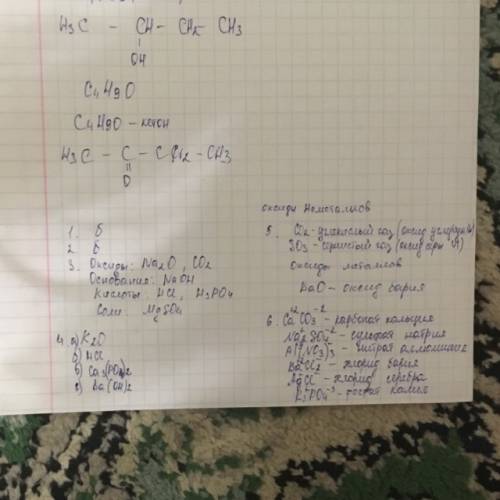 H3C - CH - CH2 - CH3
OH
C4H9O
C4H9O - кетон
H3C - C - CH2 - CH3
O
1. б
2. б
3. Оксиды: Na2O, CO2
Основания: NaOH
Кислоты: HCl, H3PO4
Соли: MgSO4
4. а) K2O
б) HCl
в) Ca3(PO4)2
г) Ba(OH)2
оксиды неметаллов
5. CO2 - углекислый газ (оксид углерода
SO3 - сернистый газ (оксид серы VI)
Оксиды металлов
BaO - оксид бария
6. CaCO3 - карбонат кальция
Na2SO4 - сульфат натрия
Al(NO3)3 - нитрат алюминия
BaCl2 - хлорид бария
AgCl - хлорид серебра
K3PO4 - фосфат калия